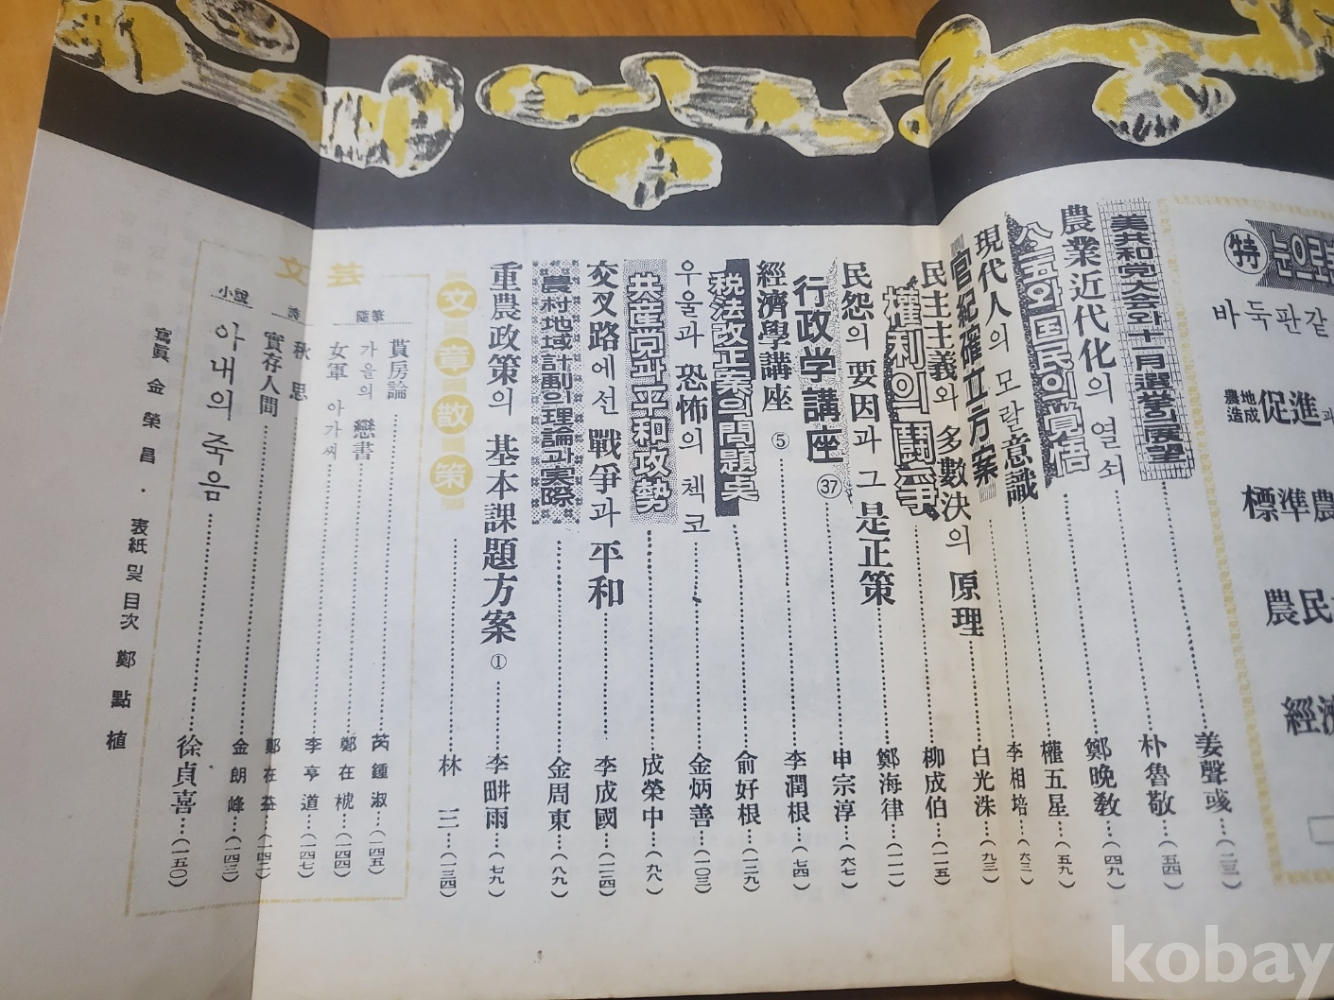 特 눈으로
바둑판같
農地造成 促進과
標準農
農民
經濟
美共和党大会와 十一月選挙의 展望 姜聲彧…(二三)
農業近代化의 열쇠 朴魯敬…(五四)
八·一五와 国民의 覚悟 鄭晩教…(四九)
現代人의 모랄意識 權五星…(五九)
官紀確立方案 李相培…(六三)
民主主義와 多數決의 原理 白光洙…(九三)
權利의 鬪爭 柳成伯…(一一五)
民怨의 要因과 그 是正策 鄭海律…(一一一)
行政学講座 ㊲ 申宗淳…(六七)
經濟學講座 ⑤ 李潤根…(七四)
税法改正案의 問題点 兪好根…(一二九)
우울과 恐怖의 체코 金炳善…(一〇三)
共産党과 平和攻勢 成榮中…(九八)
交叉路에선 戰爭과 平和 李成國…(一二四)
農村地域計劃의 理論과 実際 金周東…(八九)
重農政策의 基本課題方案 ① 李畊雨…(七九)
文章散策 林三…(一三四)
文芸
隨筆
貰房論 芮鍾淑…(一四五)
가을의 戀書 鄭在…(一四四)
女軍 아가씨 李亨道…(一四七)
詩
秋思 鄭在益…(一四二)
實存人間 金朗峰…(一四三)
小說
아내의 죽음 徐貞喜…(一五〇)
寫眞 金榮昌 · 表紙 및 目次 鄭點植
kobay